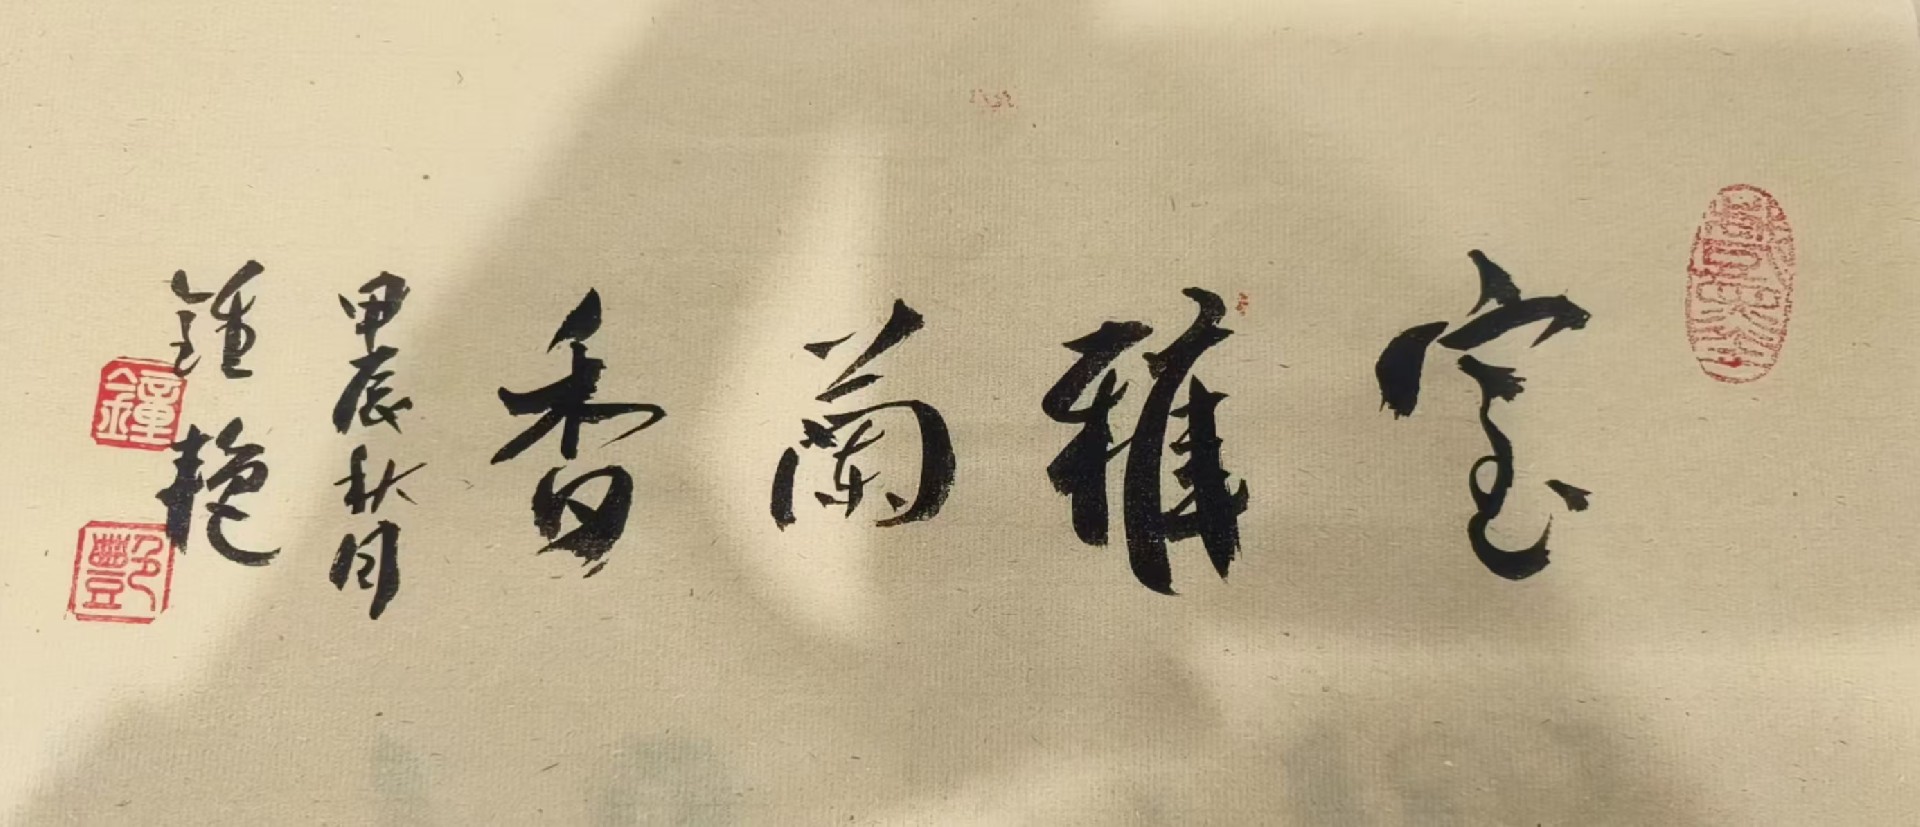 室雅蘭香
甲辰秋月
鍾艳
鐘
豔